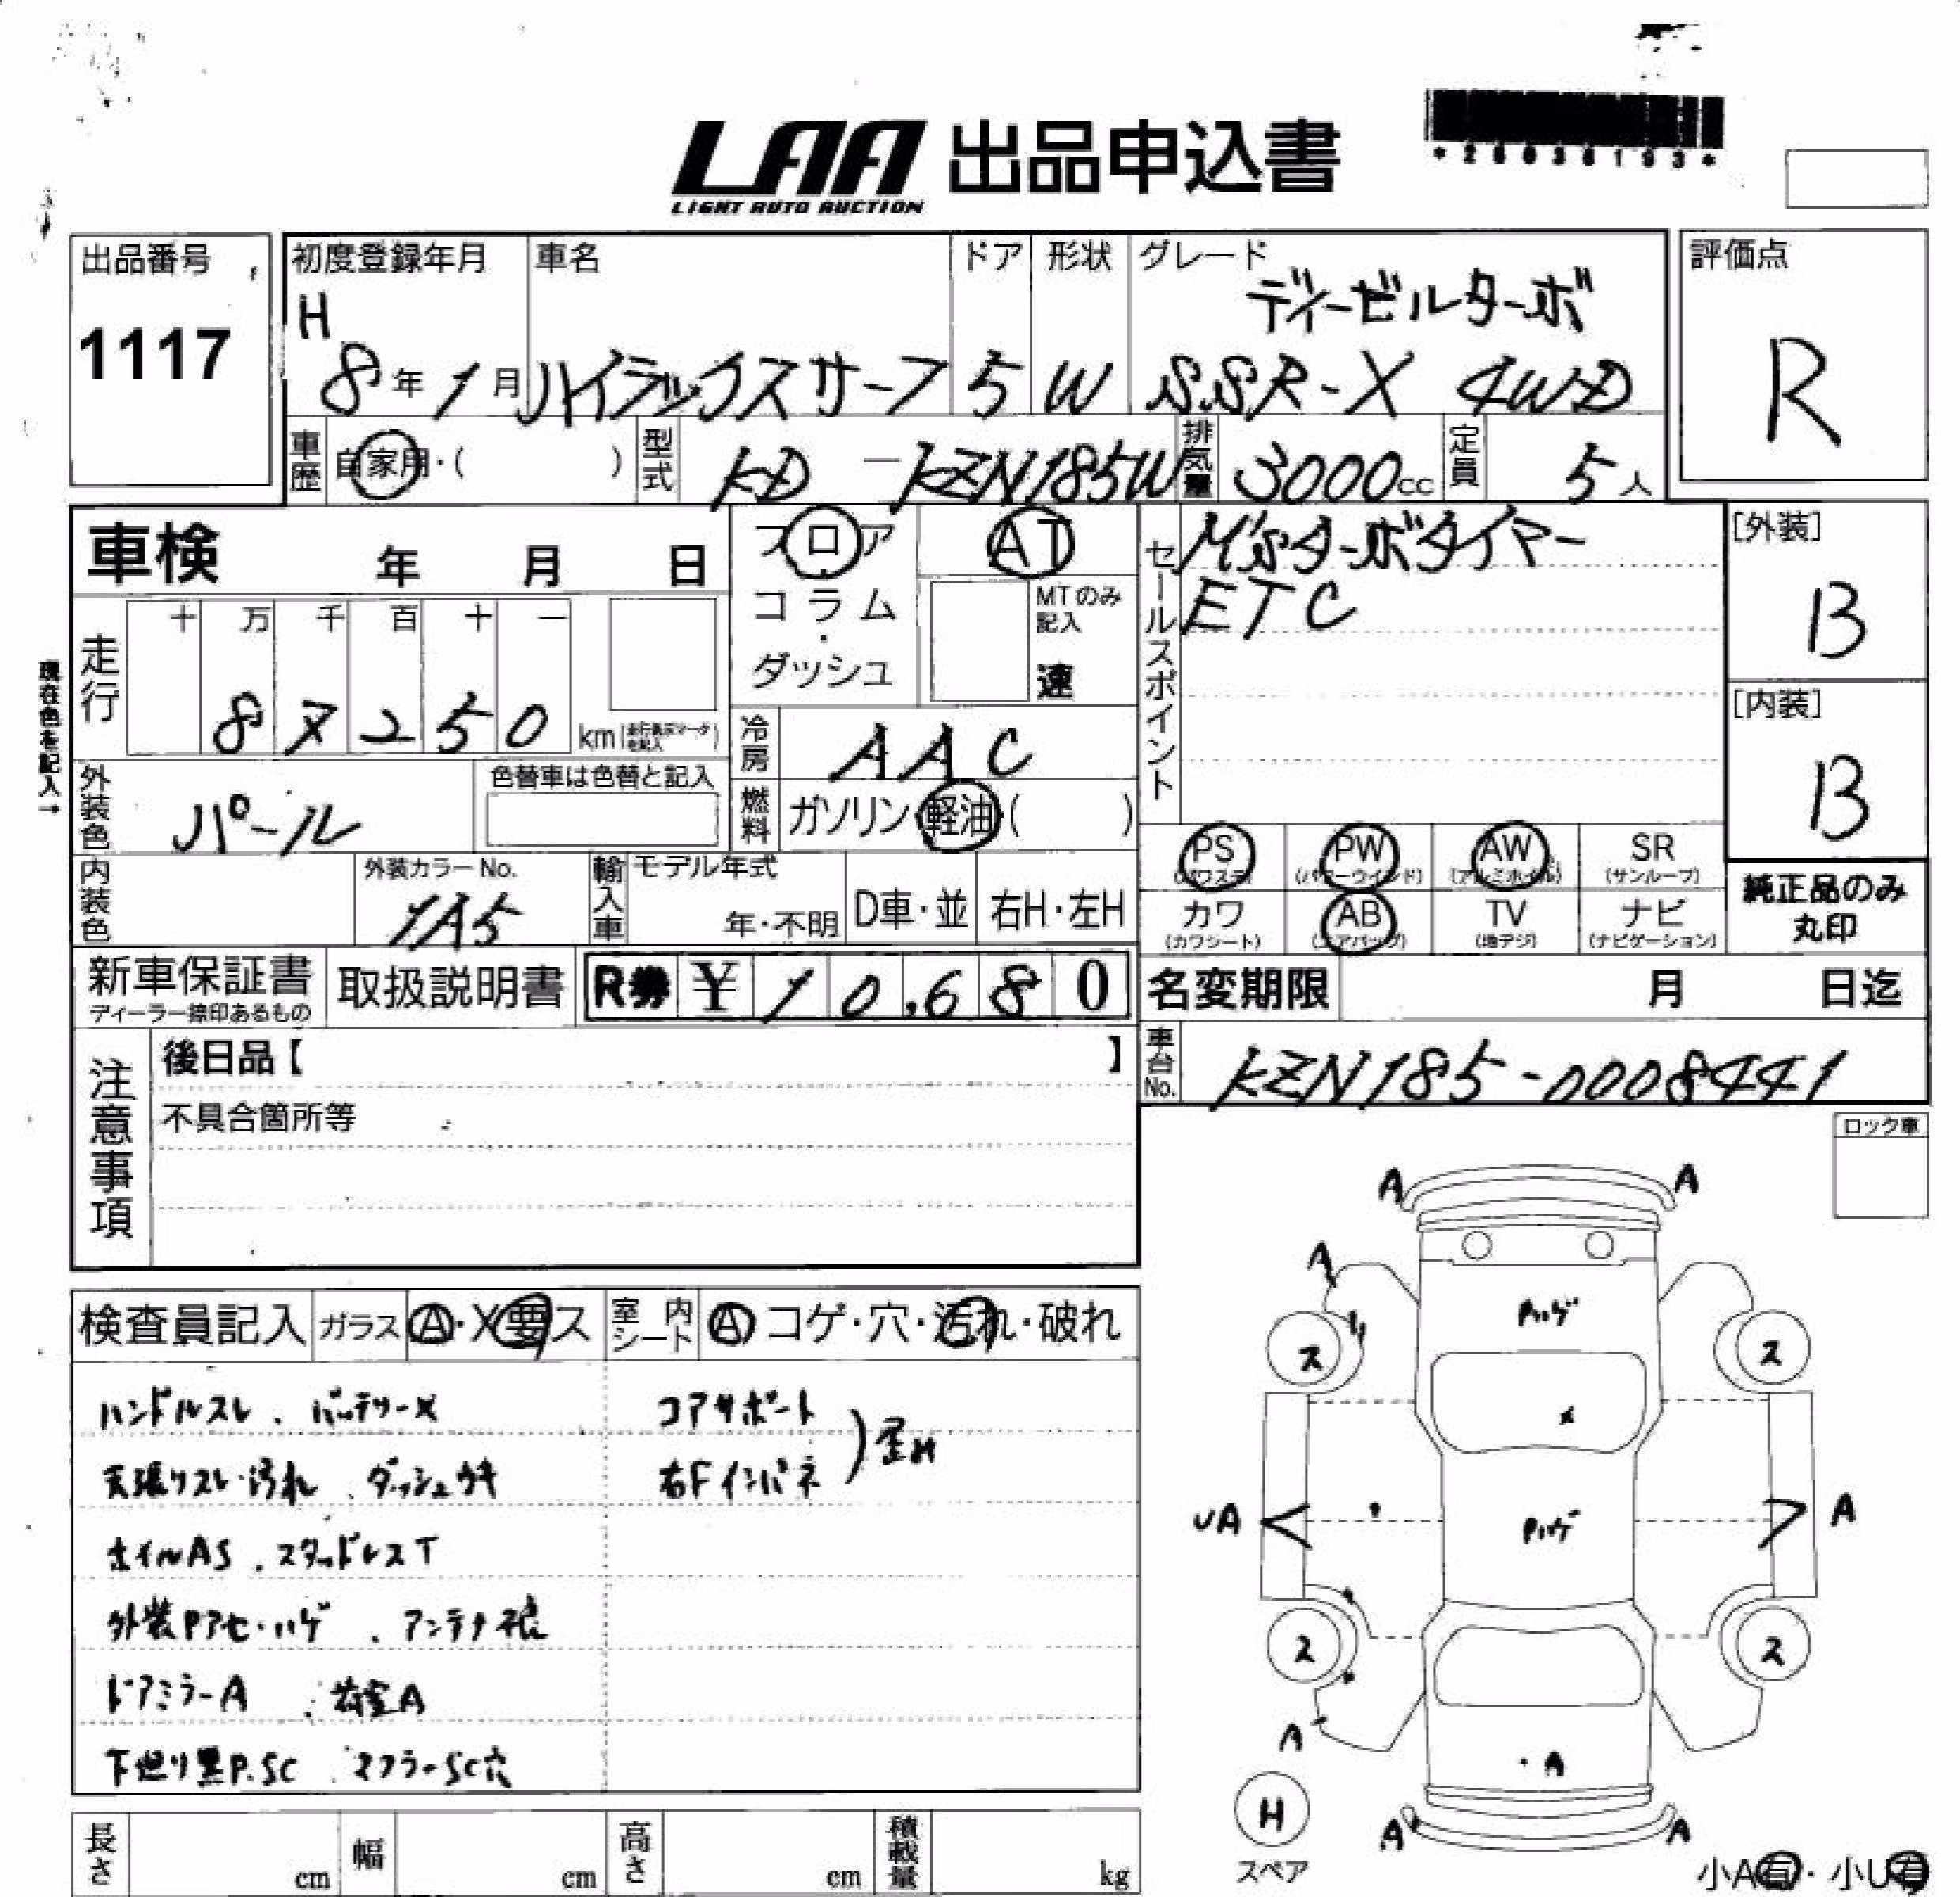 LAA 出品申込書
LIGHT AUTO AUCTION
出品番号
1117
初度登録年月
H
8年1月
車名
ハイラックスサーフ
ドア
5
形状
W
グレード
ディーゼルターボ
SSR-X 4WD
評価点
R
車歴
自家用・( )
型式
KD-KZN185W
排気量
3000cc
定員
5人
車検 年 月 日
フロア
コラム
・
ダッシュ
AT
MTのみ
記入
速
セールスポイント
M'sターボタイマー
ETC
[外装]
B
[内装]
B
現在色を記入→
走行
十 万 千 百 十 一
8 7 2 5 0 km
冷房
AAC
外装色
パール
色替車は色替と記入
燃料
ガソリン・軽油( )
内装色
外装カラーNo.
1A5
輸入車
モデル年式
年・不明
D車・並
右H・左H
PS
(パワステ)
PW
(パワーウインド)
AW
(アルミホイル)
SR
(サンルーフ)
カワ
(カワシート)
AB
(エアバッグ)
TV
(地デジ)
ナビ
(ナビゲーション)
純正品のみ
丸印
新車保証書
ディーラー捺印あるもの
取扱説明書
R券 ¥10,680
名変期限 月 日迄
車台No.
KZN185-0008441
注意事項
後日品【 】
不具合箇所等
ロック車
検査員記入
ガラス
A・X要ス
室内シート
A コゲ・穴・汚れ・破れ
ハンドルスレ、バッテリーX
天張リスレ・汚れ、ダッシュウキ
ホイルAS、スタッドレスT
外装Pアセ・ハゲ、アンテナ
ドアミラーA、荷室A
下廻り黒P.SC、マフラーSC穴
コアサポート
右Fインパネ
歪み
A A
A
Pハゲ
ス ス
X
UA A
Pハゲ
ス ス
A
A
H
スペア
A A
小A有・小U有
長さ cm
幅 cm
高さ cm
積載量 kg